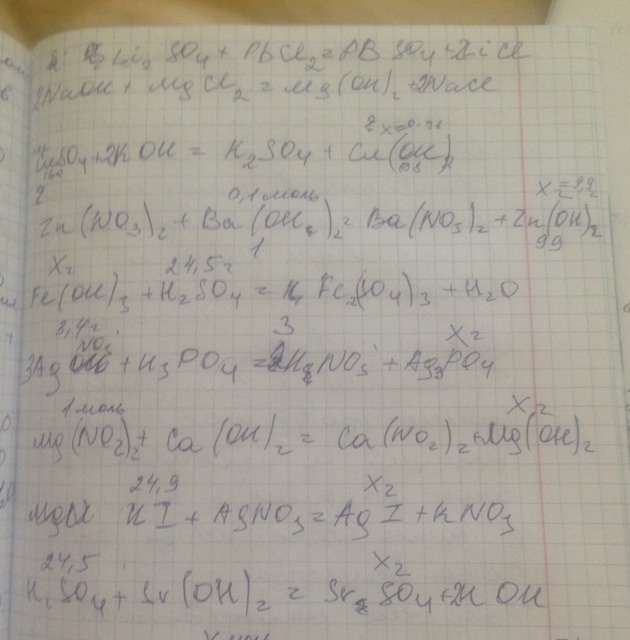 Li₂SO₄ + PbCl₂ = PBSO₄ + 2LiCl
2NaOH + MgCl₂ = Mg(OH)₂ + 2NaCl
2 x=0.98
SO₄ + 2KOH = K₂SO₄ + Cu(OH)₂
160 98
2 0,1 моль X₂ = 9,9
Zn(NO₃)₂ + Ba(OH)₂ = Ba(NO₃)₂ + Zn(OH)₂
1 99
X₂ 24,5 г
Fe(OH)₃ + H₂SO₄ = Fe₂(SO₄)₃ + H₂O
3,4 г 3 X₂
3Ag NO₃ + H₃PO₄ = HNO₃ + Ag₃PO₄
1 моль X₂
Mg(NO₂)₂ + Ca(OH)₂ = Ca(NO₂)₂ + Mg(OH)₂
24,9 X₂
KI + AgNO₃ = AgI + KNO₃
24,5 X₂
H₂SO₄ + Sr(OH)₂ = SrSO₄ + 2HOH